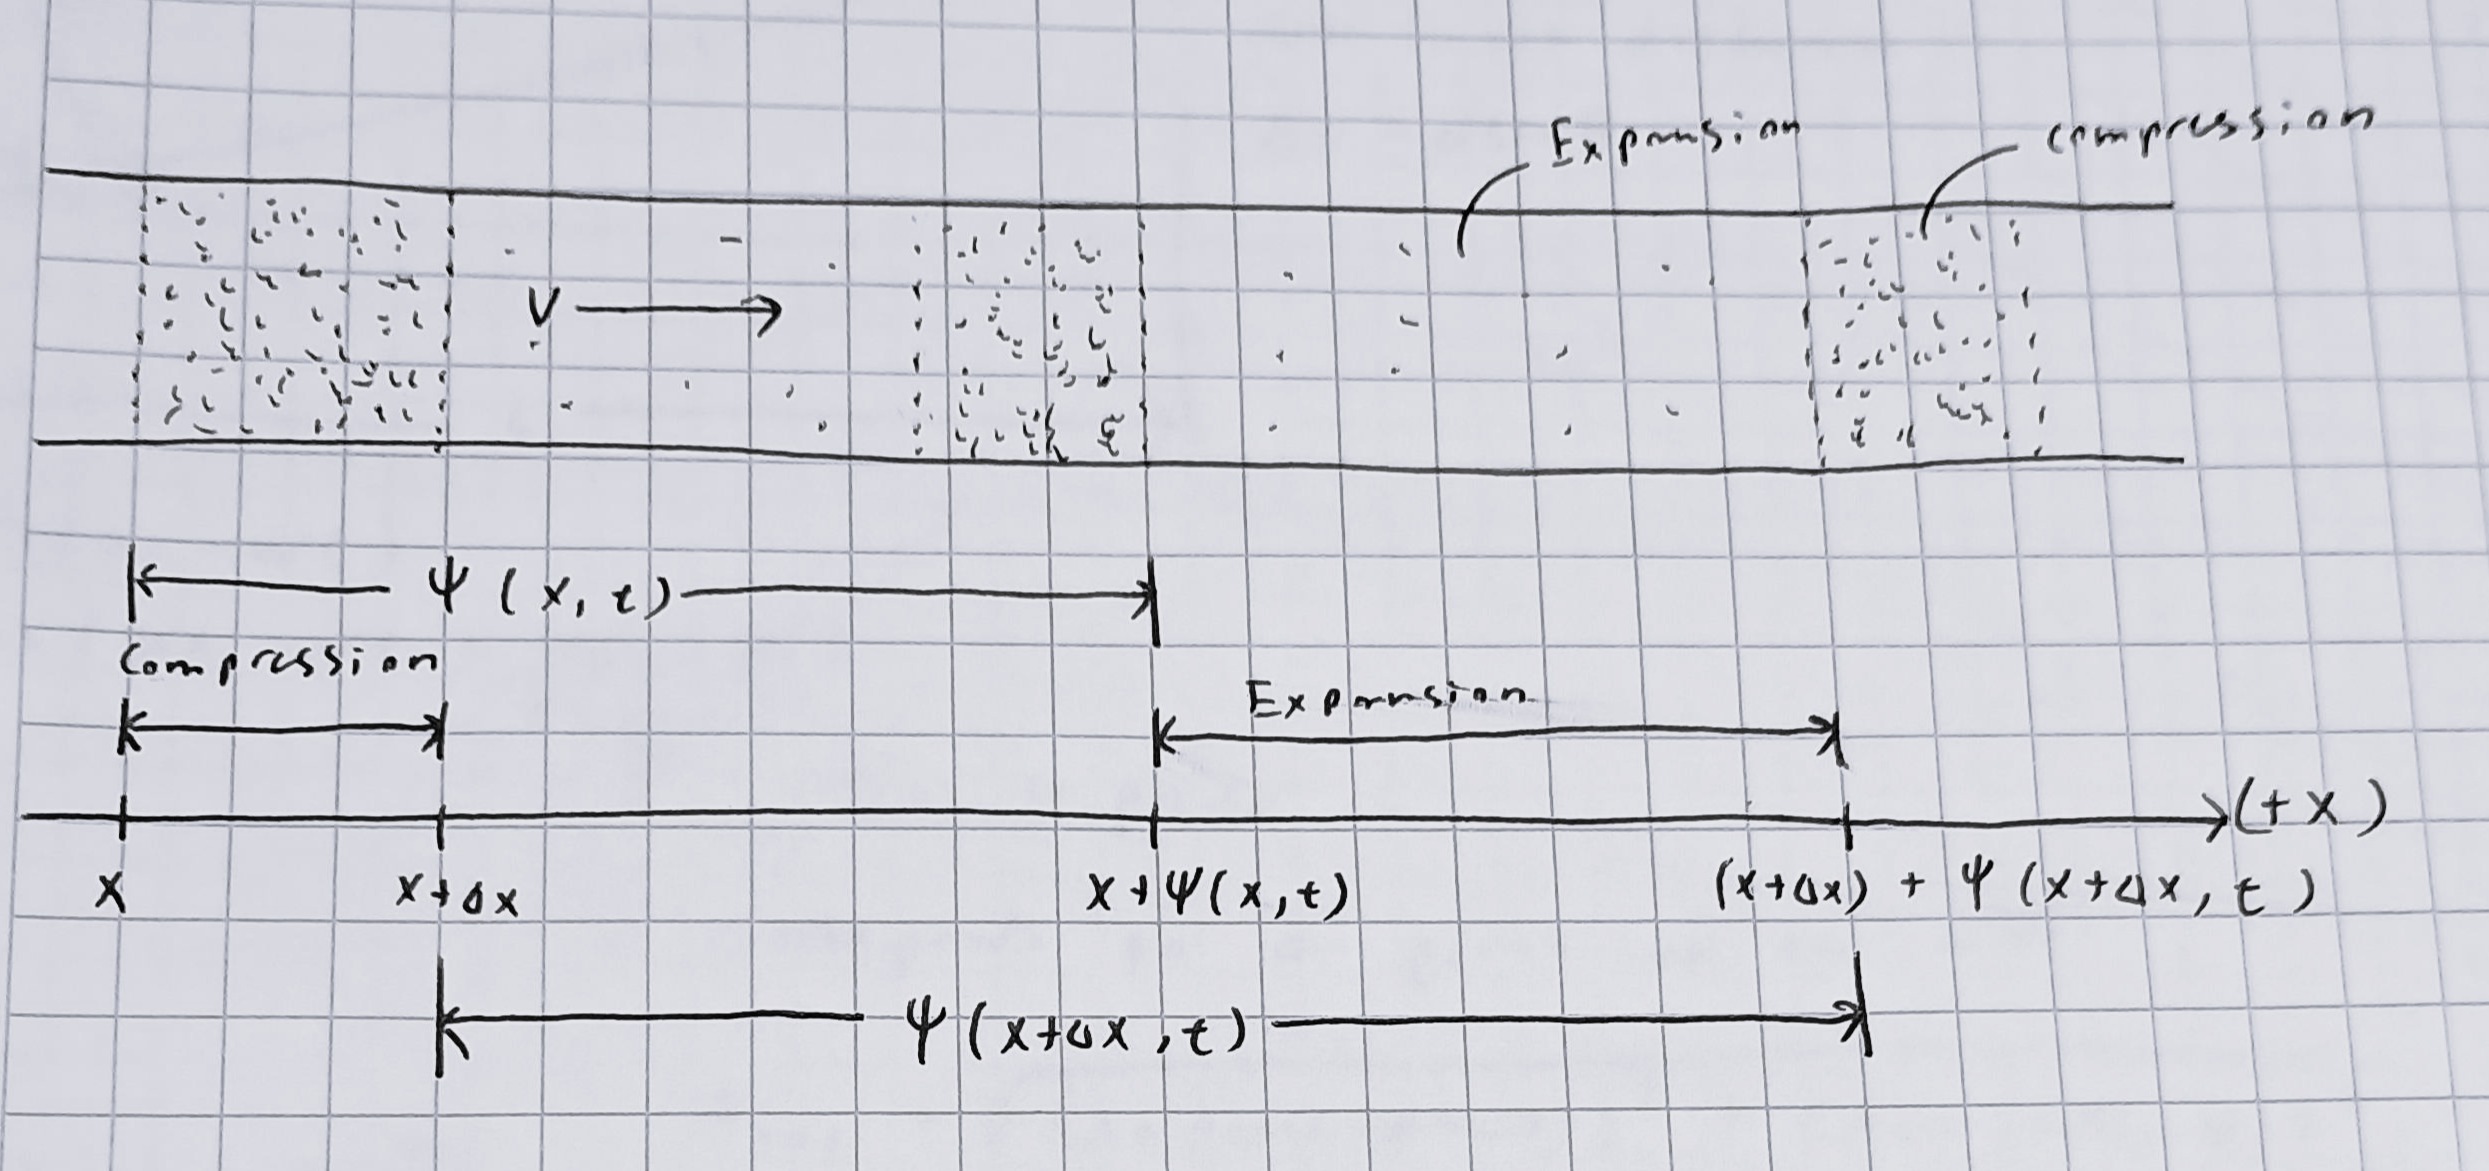 Expansion
compression
V
ψ (x, t)
Compression
Expansion
(+x)
x
x+Δx
x+ψ(x,t)
(x+Δx) + ψ (x+Δx, t)
ψ (x+Δx, t)